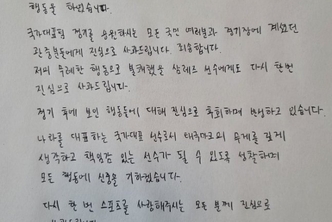 행동을 하였습니다.
국가대표팀 경기를 응원하시는 모든 국민 여러분과 경기장에 계셨던
관중분들에게 진심으로 사과드립니다. 죄송합니다.
저의 무례한 행동으로 불쾌했을 삼레즈 선수에게도 다시 한번
진심으로 사과드립니다.
경기 후에 보인 행동들에 대해 진심으로 후회하며 반성하고 있습니다.
나라를 대표하는 국가대표 선수로서 태극마크의 무게를 깊게
생각하고 책임감 있는 선수가 될 수 있도록 성찰하며
모든 행동에 신중을 기하겠습니다.
다시 한 번 스포츠를 사랑해주시는 모든 분께 진심으로